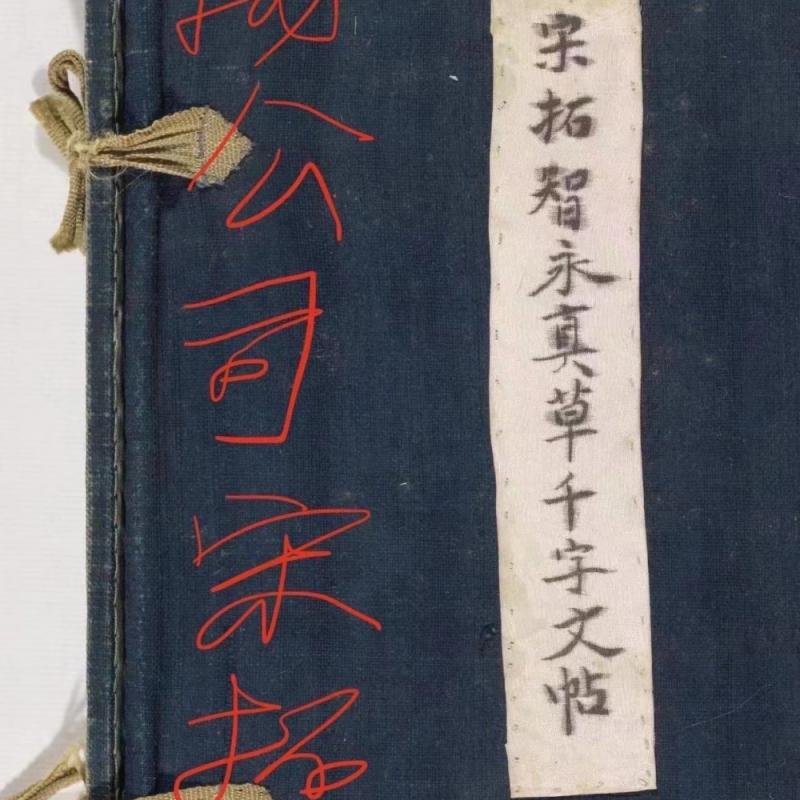 宋拓智永真草千字文帖
公司宋